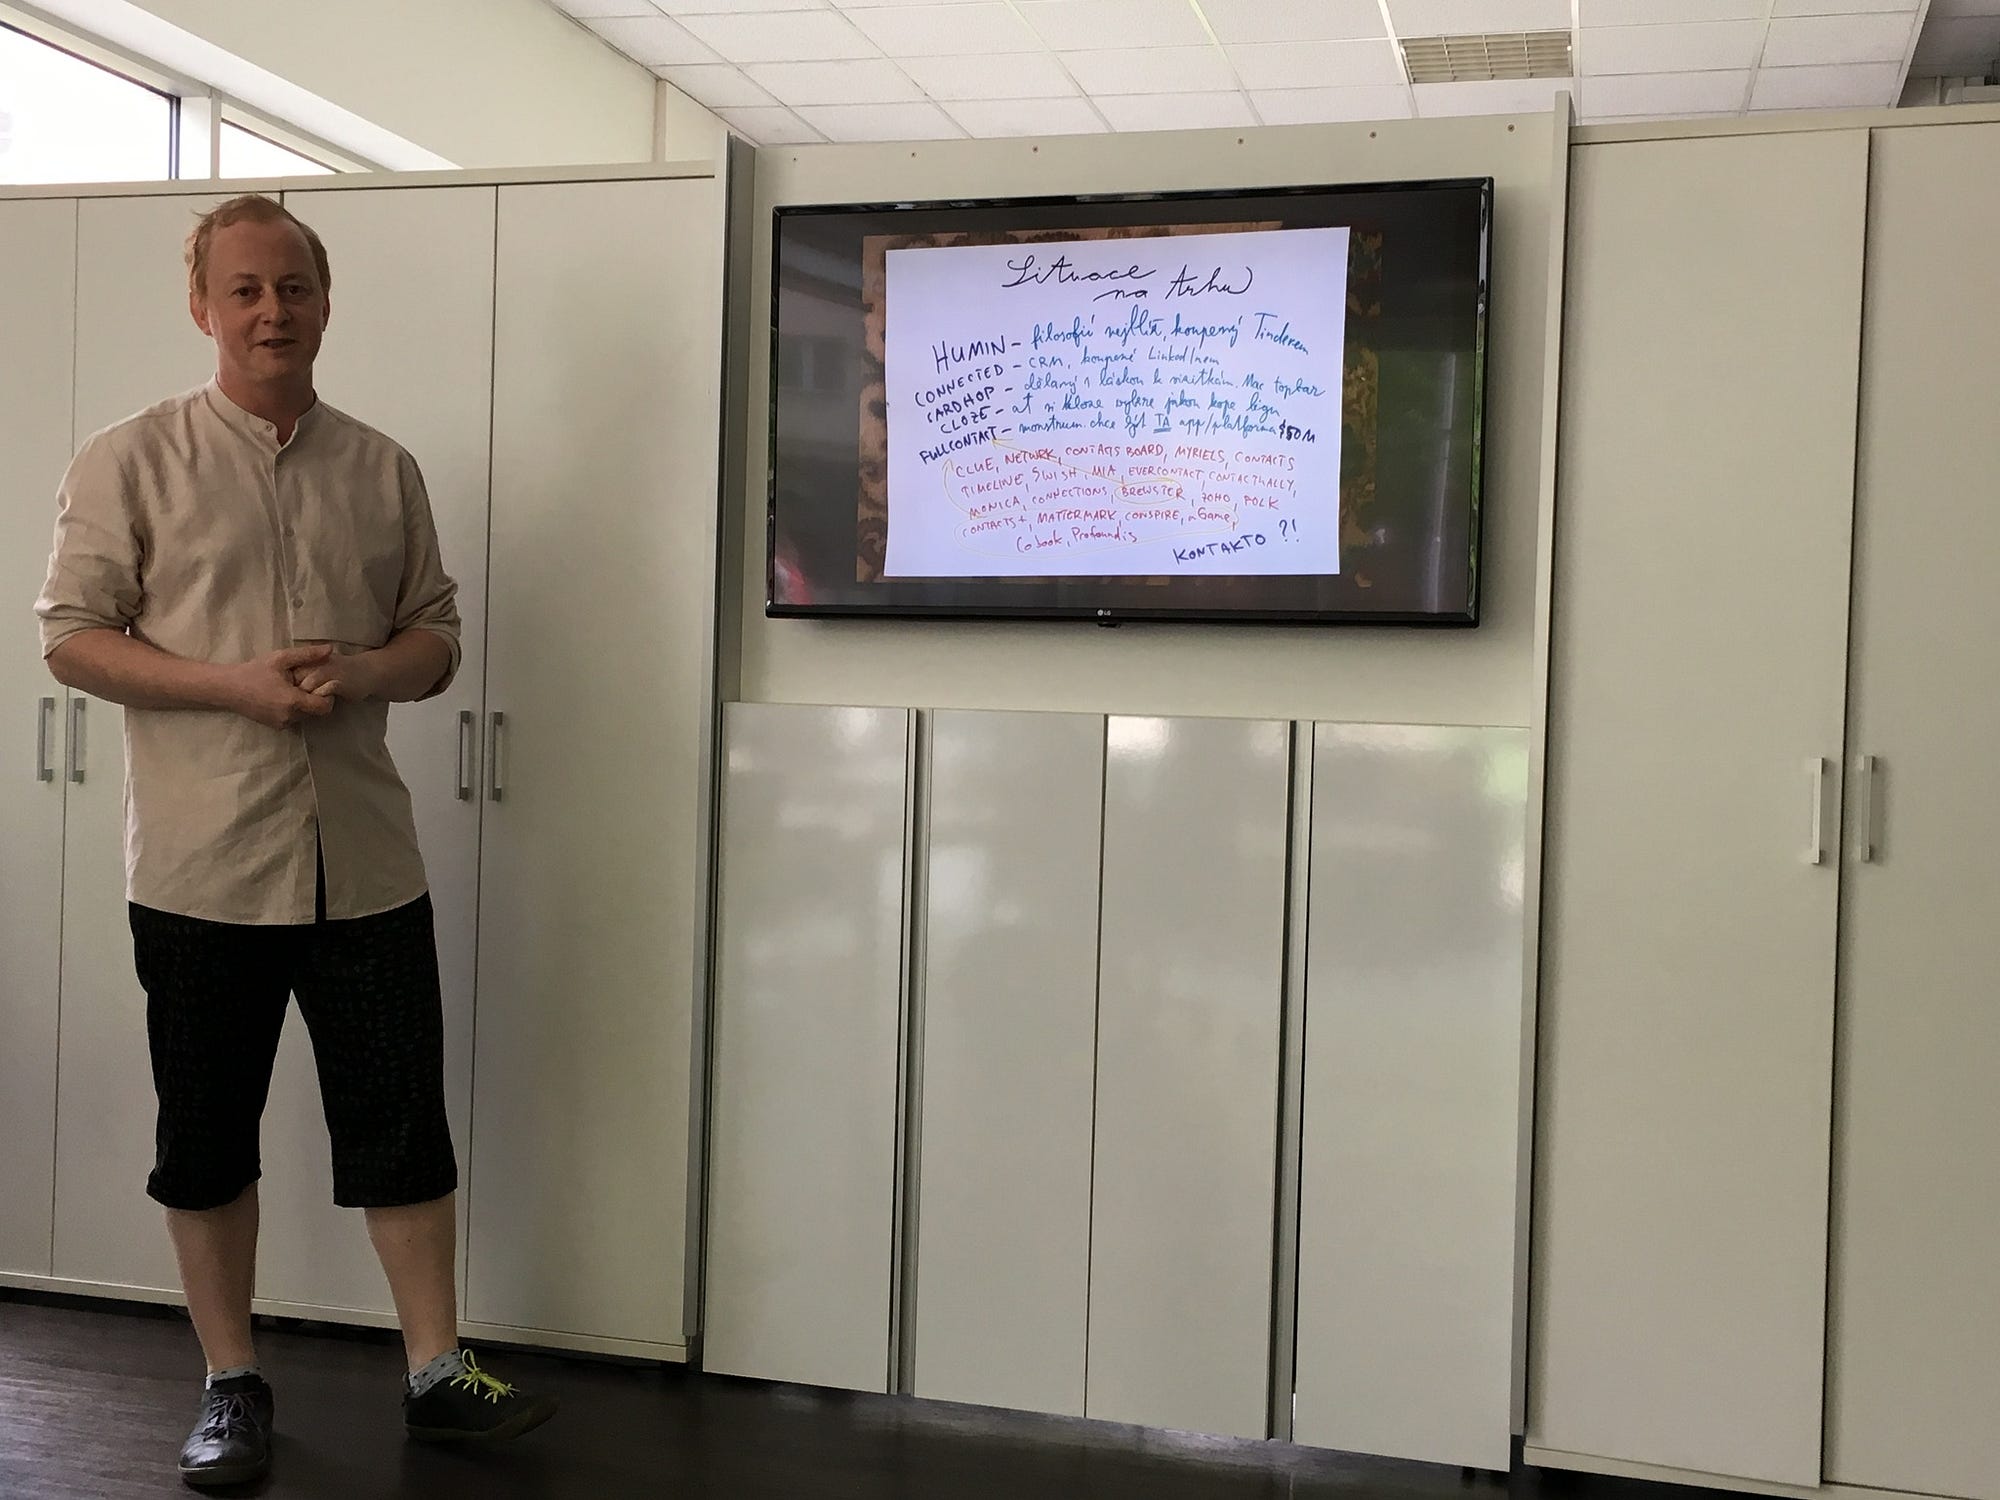 Situace
na trhu
HUMIN – filosofií nejblíž, koupený Tinderem
CONNECTED – CRM, koupené LinkedInem
CARDHOP – dělaný s láskou k vizitkám. Mac topbar
CLOZE – ať si kloze vyláme jakou kope ligu
FULLCONTACT – monstrum. chce být TA app/platforma $50M
CLUE, NETWRK, CONTACTS BOARD, MYRIELS, CONTACTS
TIMELINE, SWISH, MIA, EVERCONTACT, CONTACTUALLY,
MONICA, CONNECTIONS, BREWSTER, ZOHO, FOLK
CONTACTS+, MATTERMARK, CONSPIRE, nGame,
Cobook, Profoundis
KONTAKTO ?!
LG